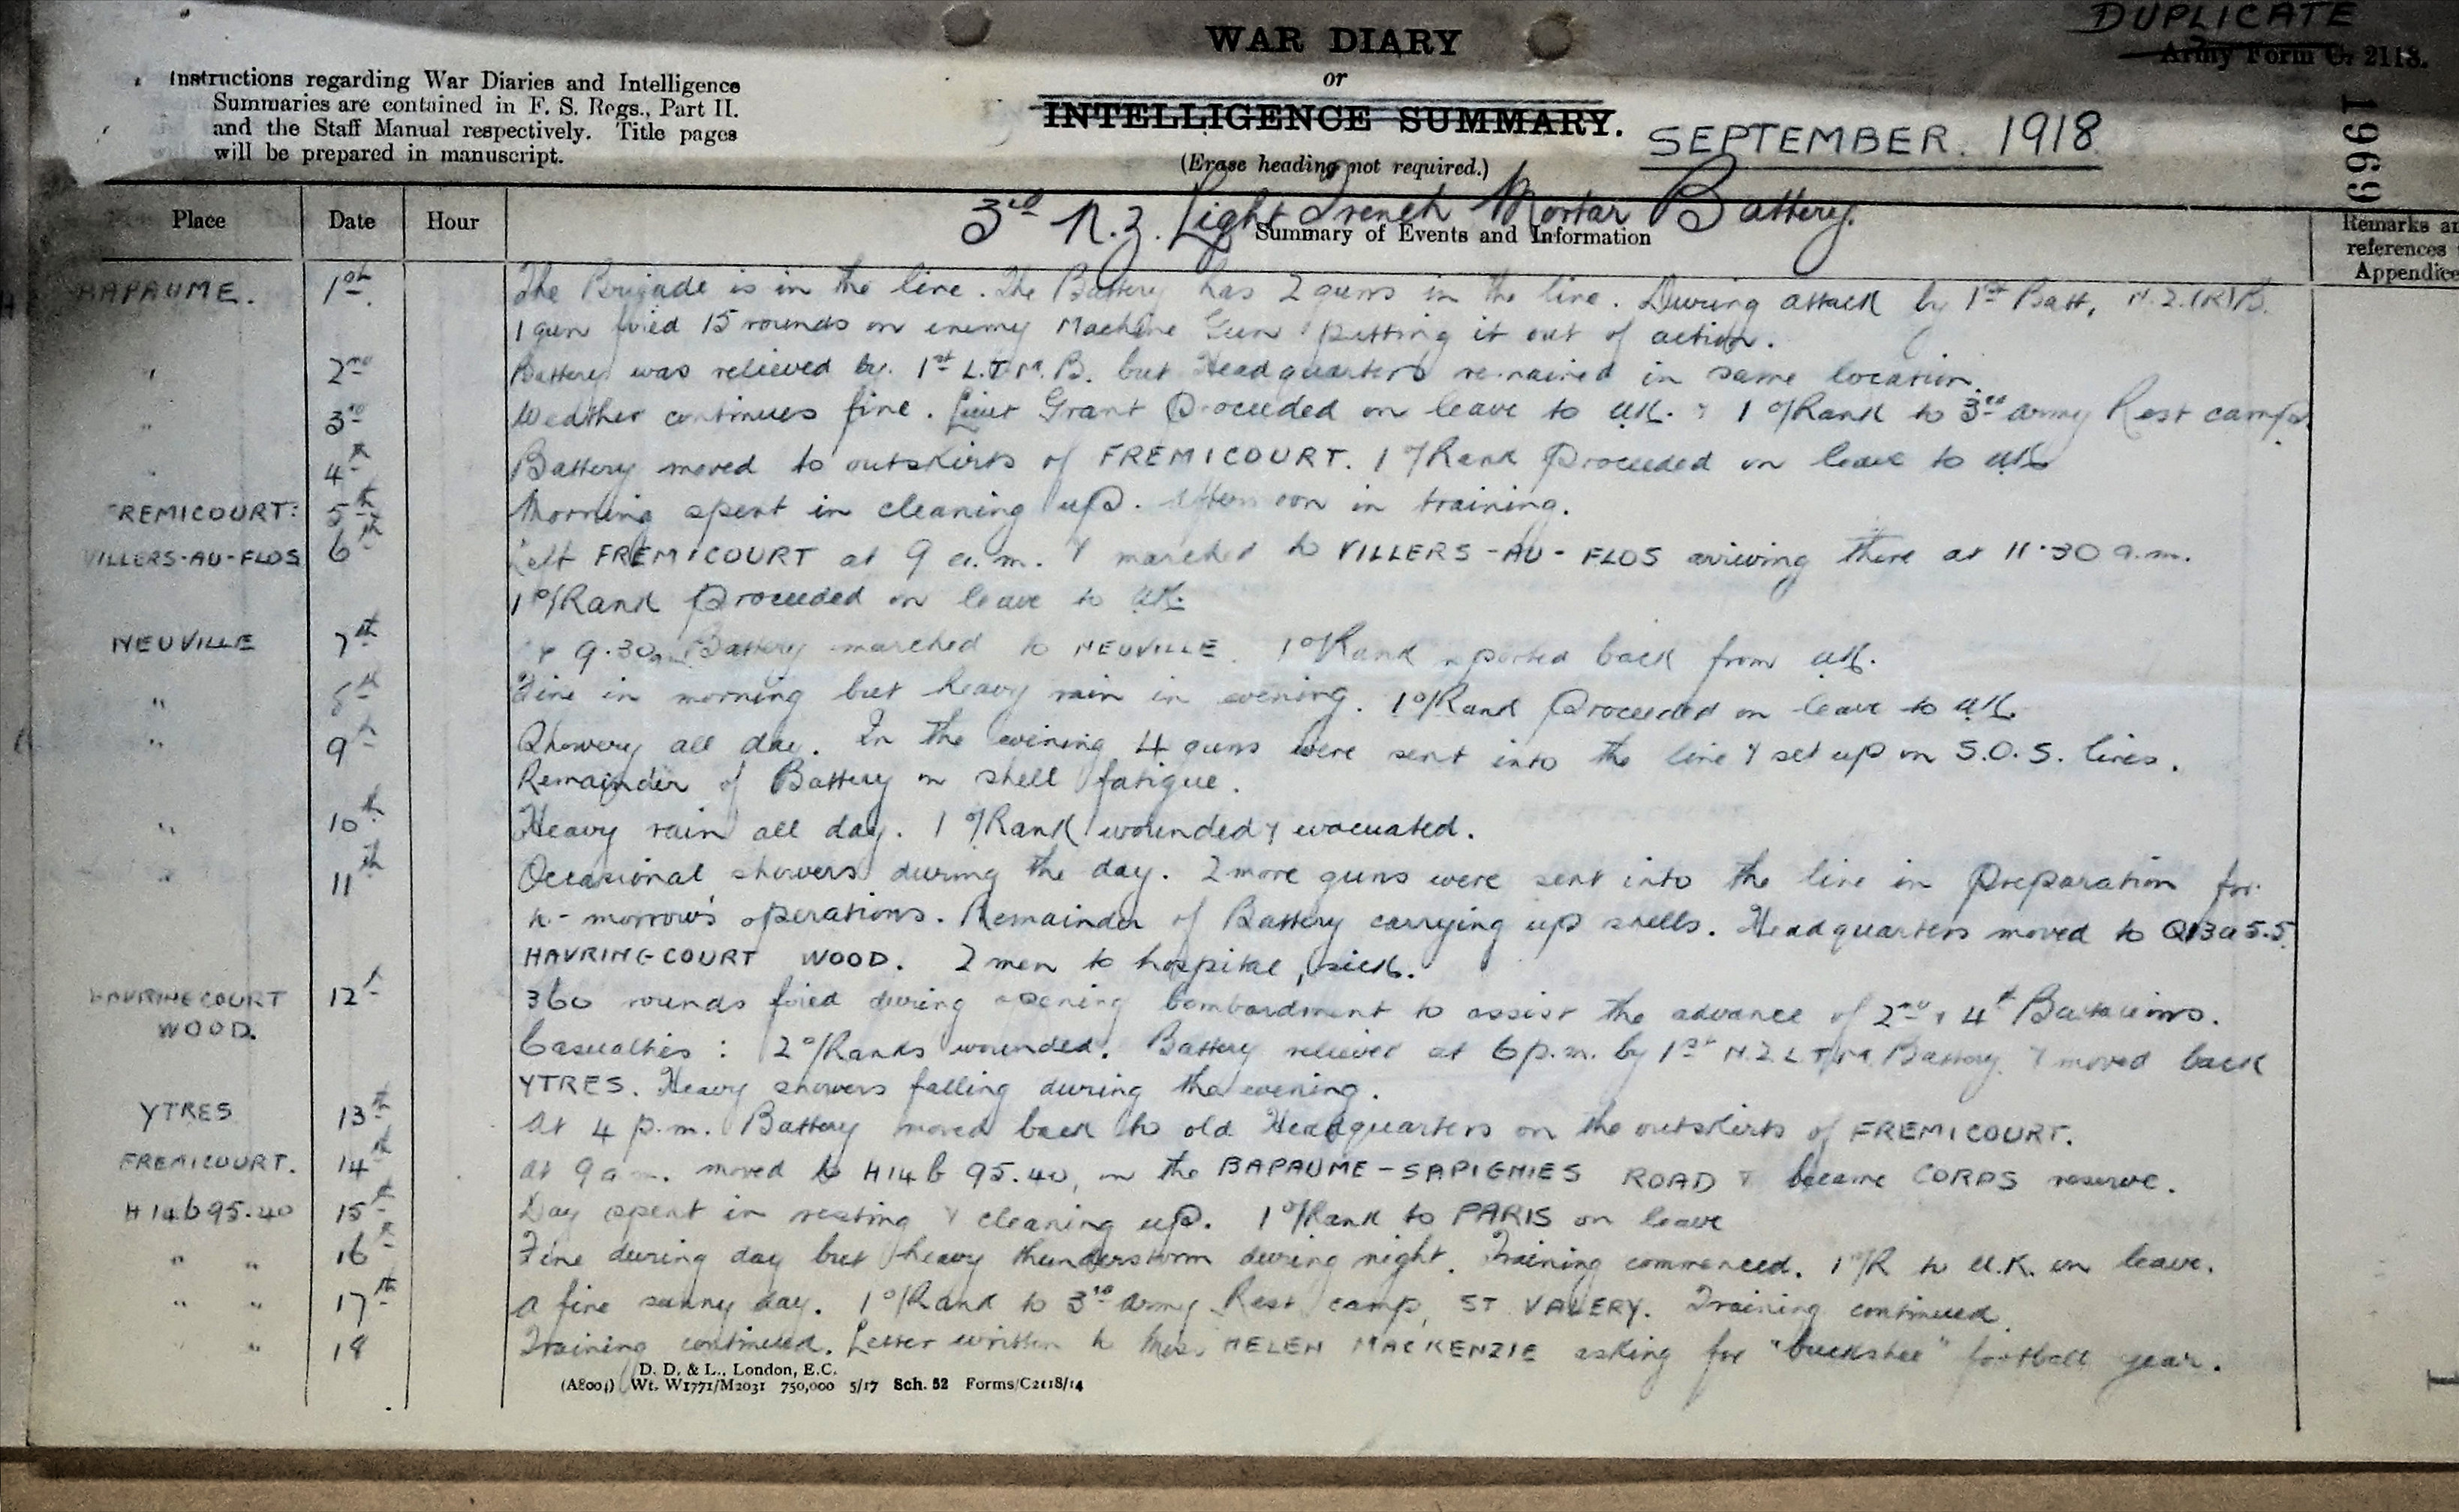 DUPLICATE
Army Form C. 2118.
WAR DIARY
or
INTELLIGENCE SUMMARY.
(Erase heading not required.)
SEPTEMBER. 1918
1969
Instructions regarding War Diaries and Intelligence
Summaries are contained in F. S. Regs., Part II.
and the Staff Manual respectively. Title pages
will be prepared in manuscript.
3rd N.Z. Light Trench Mortar Battery.
Place Date Hour Summary of Events and Information Remarks and
references
Appendice
BAPAUME. 1st. The Brigade is in the line. The Battery has 2 guns in the line. During attack by 1st Batt, N.Z.(R)B.
1 gun fired 15 rounds on enemy Machine Gun putting it out of action.
" 2nd Battery was relieved by 1st L.T.M.B. but Headquarters remained in same location.
" 3rd Weather continues fine. Lieut Grant Proceeded on leave to U.K. & 1 O/Rank to 3rd Army Rest camp.
" 4th Battery moved to outskirts of FREMICOURT. 1 O/Rank Proceeded on leave to UK
FREMICOURT: 5th Morning spent in cleaning up. Afternoon in training.
VILLERS-AU-FLOS 6th Left FREMICOURT at 9 a.m. & marched to VILLERS-AU-FLOS arriving there at 11.30 a.m.
1 O/Rank Proceeded on leave to UK.
NEUVILLE 7th At 9.30am Battery marched to NEUVILLE. 1 O/Rank reported back from UK.
" 8th Fine in morning but heavy rain in evening. 1 O/Rank Proceeded on leave to UK.
" 9th Showery all day. In the evening 4 guns were sent into the line & set up on S.O.S. lines.
Remainder of Battery on shell fatigue.
" 10th Heavy rain all day. 1 O/Rank wounded & evacuated.
" 11th Occasional showers during the day. 2 more guns were sent into the line in Preparation for
to-morrow's operations. Remainder of Battery carrying up shells. Headquarters moved to Q13a5.5.
HAVRINGCOURT WOOD. 2 men to hospital, sick.
HAVRINGCOURT 12th 360 rounds fired during opening bombardment to assist the advance of 2nd & 4th Battalions.
WOOD. Casualties: 2 O/Ranks wounded. Battery relieved at 6 p.m. by 1st N.Z L T M Battery & moved back
YTRES. Heavy showers falling during the evening.
YTRES 13th At 4 p.m. Battery moved back to old Headquarters on the outskirts of FREMICOURT.
FREMICOURT. 14th At 9 a.m. moved to H14 b 95.40, on the BAPAUME-SAPIGNIES ROAD & became CORPS reserve.
H14b95.40 15th Day spent in resting & cleaning up. 1 O/Rank to PARIS on leave
" " 16th Fine during day but heavy thunderstorm during night. Training commenced. 1 O/R to U.K. on leave.
" " 17th A fine sunny day. 1 O/Rank to 3rd Army Rest camp, ST VALERY. Training continued.
" " 18 Training continued. Letter written to Miss HELEN MACKENZIE asking for "buckshee" football gear.
D. D. & L., London, E.C.
(A8004) Wt. W1771/M2031 750,000 5/17 Sch. 52 Forms/C2118/14